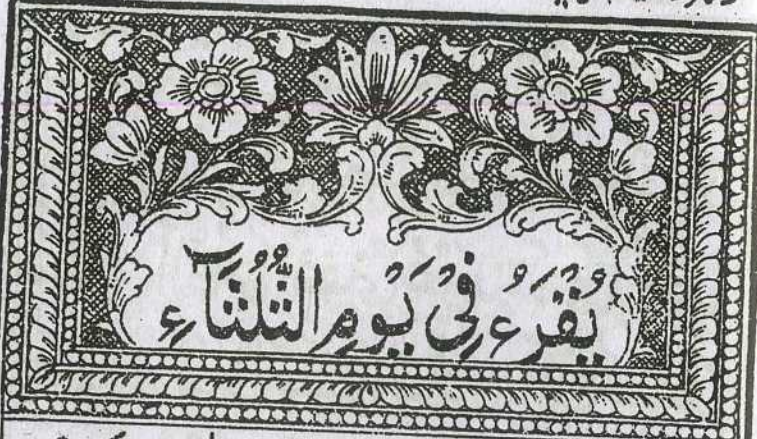 يُقْرَءُ فِيْ يَوْمِ الثُّلُثَآءِ